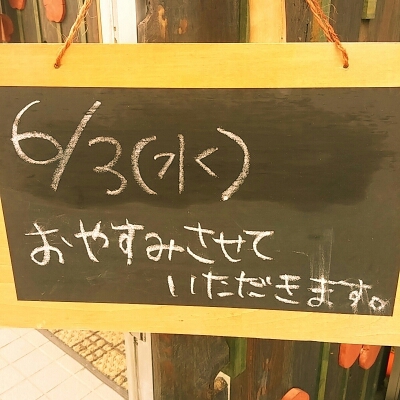 6/3(水)
おやすみさせて
いただきます。